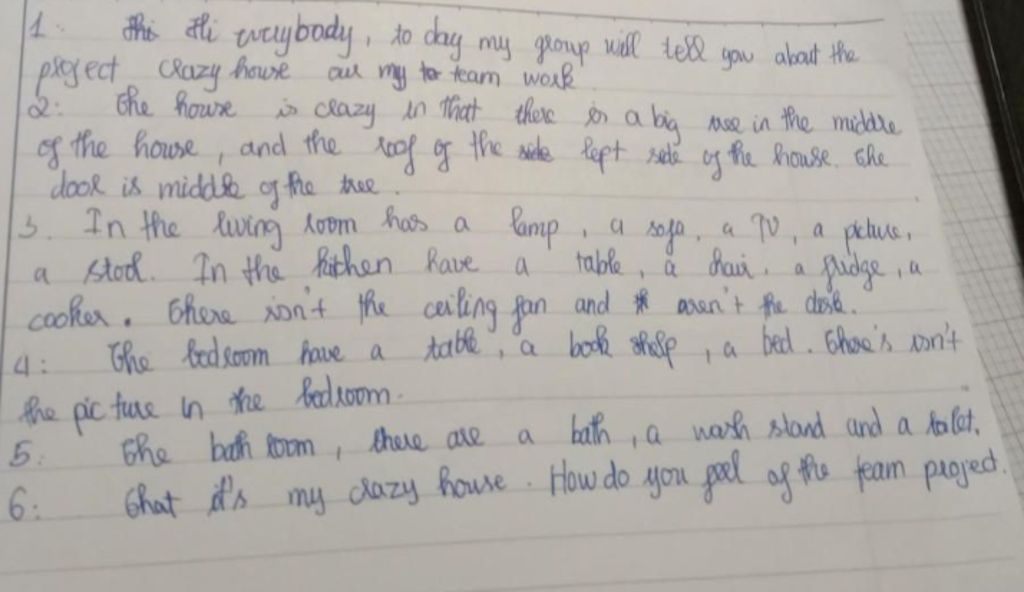 1. Hi everybody, to day my group will tell you about the
project crazy house our my team work
2: The house is crazy in that there is a big tree in the middle
of the house, and the roof of the left side of the house. The
door is middle of the tree.
3. In the living room has a lamp, a sofa, a TV, a picture,
a stool. In the kithen have a table, a chair, a fridge, a
cooker. There isn't the ceiling fan and aren't the desk.
4: The bedroom have a table, a book shelf, a bed. There's isn't
the picture in the bedroom.
5: The bath room, there are a bath, a wash stand and a toilet.
6: That it's my crazy house. How do you feel of the team project.